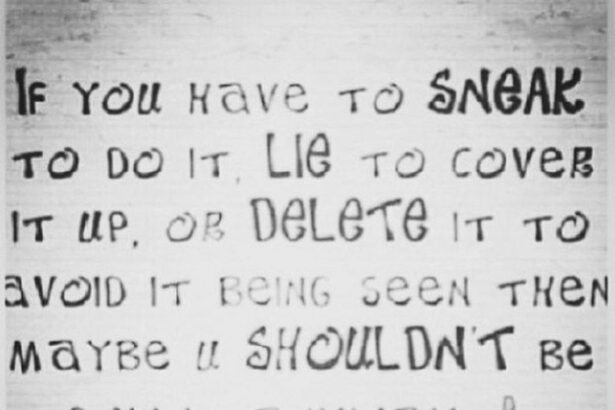 IF YOU HAVE TO SNEAK
TO DO IT, LIE TO COVER
IT UP, OR DELETE IT TO
AVOID IT BEING SEEN THEN
MAYBE U SHOULDN'T BE